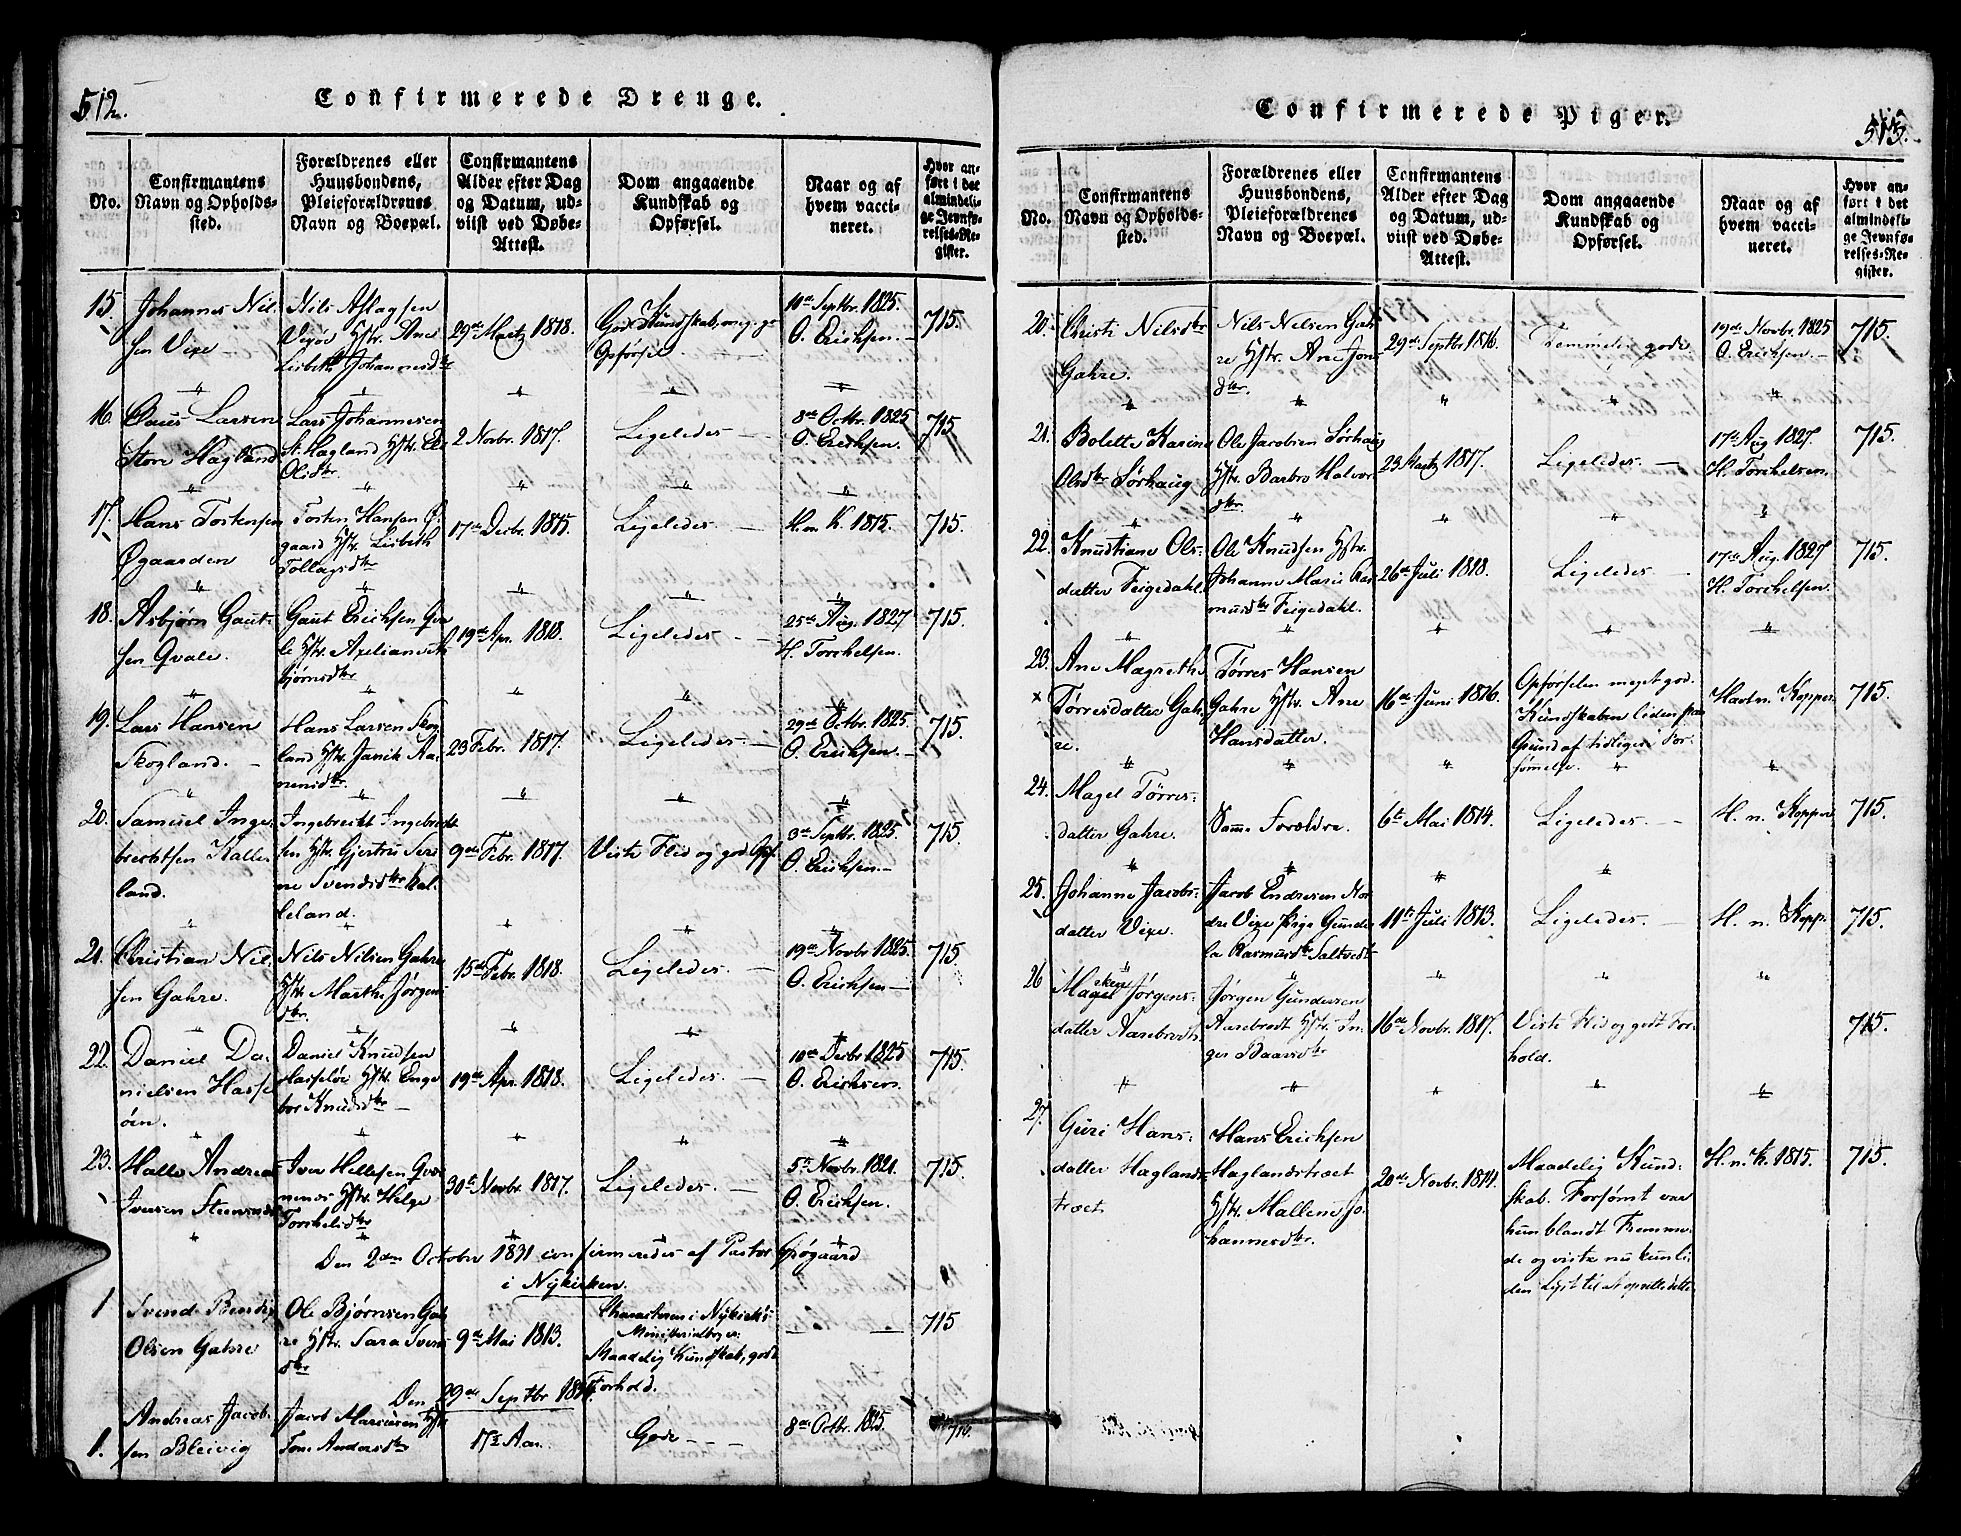 512.
Confirmerede Drenge.
No.
Confirmantens
Navn og Opholds-
sted.
Forældrenes eller
Huusbondens,
Pleieforældrenes
Navn og Boepæl.
Confirmantens
Alder efter Dag
og Datum, ud-
viist ved Døbe-
Attest.
Dom angaaende
Kundskab og
Opførsel.
Naar og af
hvem vacci-
neret.
Hvor an-
ført i det
almindeli-
ge Jevnfø-
relses-Re-
gister.
15.
Johannes Nil-
sen Vixe
Nils Aslagsen
Lisbeth Johannesdtr
29de Martz 1818.
God Kundskab, meg. g.
Opførsel
10de Septbr. 1825.
O. Erichsen.
715.
16.
Claus Larsen
Store Hagland
Lars Johannesen
St. Hagland Hstr.
Olsdtr.
2 Novbr. 1817.
Ligeledes
8de Octbr. 1825
O. Erichsen.
715
17.
Hans Tostensen
Øgaarden
Tosten Hansen Ø-
gaard Hstr. Lisbeth
Tollagsdtr
17de Decbr. 1815.
Ligeledes.
H. n. K. 1815.
715.
18.
Asbjørn Gaut-
sen Qvale.
Gaut Erichsen Qva
le Hstr.
bjørnsdtr
19de Apr. 1818.
Ligeledes
25de Aug. 1827
H. Torchelsen.
715.
19.
Lars Hansen
Skogland.
Hans Larsen Skog
land Hstr. Janik Aa-
nensdtr.
23 Febr. 1817.
Ligeledes.
29de Octbr. 1825.
O. Erichsen.
715.
20.
Samuel Inge-
brechtsen Kalle-
land.
Ingebrecht Ingebrecht-
sen Hstr. Gjertru Seri-
ne Svendsdtr Kal-
leland.
9de Febr. 1817.
Viste Flid og god Opf.
3de Septbr. 1825
O. Erichsen.
715.
21.
Christian Nil-
sen Gahre.
Nils Nilsen Gahre
Hstr. Marthe Jørgens
dtr.
15de Febr. 1818.
Ligeledes
19de Novbr 1825.
O. Erichsen
715.
22.
Daniel Da-
nielsen Hasse-
øen.
Daniel Knudsen
Hasseløe Hstr. Enge-
bor Knudsdtr
19de Apr. 1818.
Ligeledes.
10de Decbr 1825
O. Erichsen.
715.
23.
Halle Andreas
Iversen
Iver Hellesen
Hstr. Helge
Torchelsdtr
30te Novbr. 1817.
Ligeledes.
5te Novbr. 1821.
O. Erichsen.
715.
Den 2den October 1831 confirmeredes af Pastor Spøgaard
i Nykirken.
1
Svend
Olsen Gahre
Ole Bjørnsen Gah
re Hstr. Sara Svens
dtr
9de Mai 1813.
Characteren i Nykirkes
Ministerialbog er:
Maadelig Kundskab, godt
Forhold.
715
Den 29de Septbr
1.
Andreas Jacob-
sen Bleivig
Jacob Hstr
Andersdtr
17½ Aar.
Gode
8de Octbr. 1825.
716.
Confirmerede Piger.
513.
No.
Confirmantens
Navn og Opholds-
sted.
Forældrenes eller
Huusbondens,
Pleieforældrenes
Navn og Boepæl.
Confirmantens
Alder efter Dag
og Datum, ud-
viist ved Døbe-
Attest.
Dom angaaende
Kundskab og
Opførsel.
Naar og af
hvem vacci-
neret.
Hvor an-
ført i det
almindeli-
ge Jevnfø-
relses-Re-
gister.
20.
Christi Nilsdtr
Gahre.
Nils Nelsen Gah
re Hstr. Ane Jons
dtr.
29de Septbr 1816.
Temmelig gode
19de Novbr. 1825
O. Erichsen.
715.
21.
Bolette Karine
Olsdtr Sørhaug
Ole Jacobsen Sørhaug
Hstr. Barbro Halvor
dtr.
23 Martz 1817.
Ligeledes.
17de Aug 1827.
H. Torchelsen.
715.
22.
Knudtiane Ols-
datter Feigedahl.
Ole Knudsen Hstr.
Johanne Marie Ras
musdtr Feigedahl.
26de Juli 1818.
Ligeledes.
17de Aug. 1827
H. Torchelsen.
715.
23.
Ane Magrethe
Tørresdatter Gah-
re.
Tørres Hansen
Gahre Hstr. Ane
Hansdatter.
16de Juni 1816.
Opførselen meget god.
Kundskaben liden paa
Grund af tidligere For-
sømelse.
Havtn. Kopper.
715.
24.
Magel Tørres-
datter Gahre.
Samme Forældre.
6te Mai 1814.
Ligeledes.
H. n. Kopper
715.
25.
Johanne Jacobs-
datter Vixe.
Jacob Endresen Nor
dre Vixe Pige Gunde-
la Rasmusdtr Saltvedt
11te Juli 1813.
Ligeledes.
H. n. Kopp.
715.
26
Jørgens-
datter Aasebroth.
Jørgen Gundersen
Aasebrodt Hstr. In-
ger Baarsdtr
16de Novbr. 1817.
Viste Flid og godt For-
hold.
715.
27.
Guri Hans-
datter Haglands-
træet
Hans Erichsen
Haglandstræet
Hstr. Mallene Jo-
hannesdtr.
20de Novbr. 1814.
Maadelig Kund-
skab. Forsømt var
hun blandt Fremme-
de og viste nu kun li-
den Lyst til at oprette dette
H. n. K. 1815.
715.